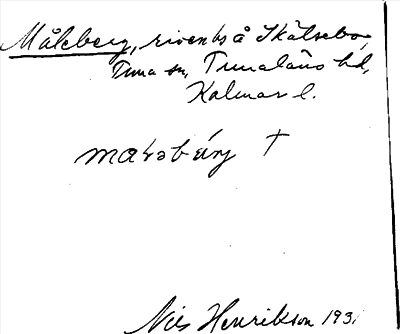 Måleberg, riven bs å Skälsebo,
Tuna sn, Tunaläns hd,
Kalmar l.
maləbærj †
Nils Henrikson 193